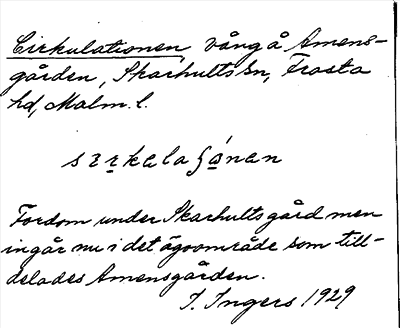 Cirkulationen vång å Amens-
gården, Skarhults sn, Frosta
hd, Malm. l.
sɪrkɐlaʃónan
Fordom under Skarhults gård men
ingår nu i det ägoområde som till-
delades Amensgården.
I. Ingers 1929